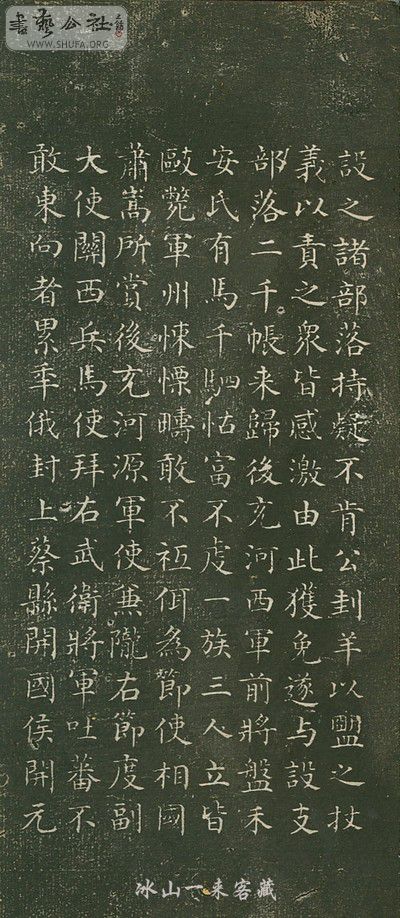 書藝公社
WWW.SHUFA.ORG
設之諸部落持疑不肯公刲羊以盟之杖
義以責之衆皆感激由此獲免遂与設支
部落二千帳来歸後充河西軍前將盤禾
安氏有馬千駟怙富不虔一族三人立皆
毆斃軍州悚慄疇敢不祗仰為節使相國
蕭嵩所賞後充河源軍使兼隴右節度副
大使關西兵馬使拜右武衛將軍吐蕃不
敢東向者累年俄封上蔡縣開國侯開元
冰山一来客藏